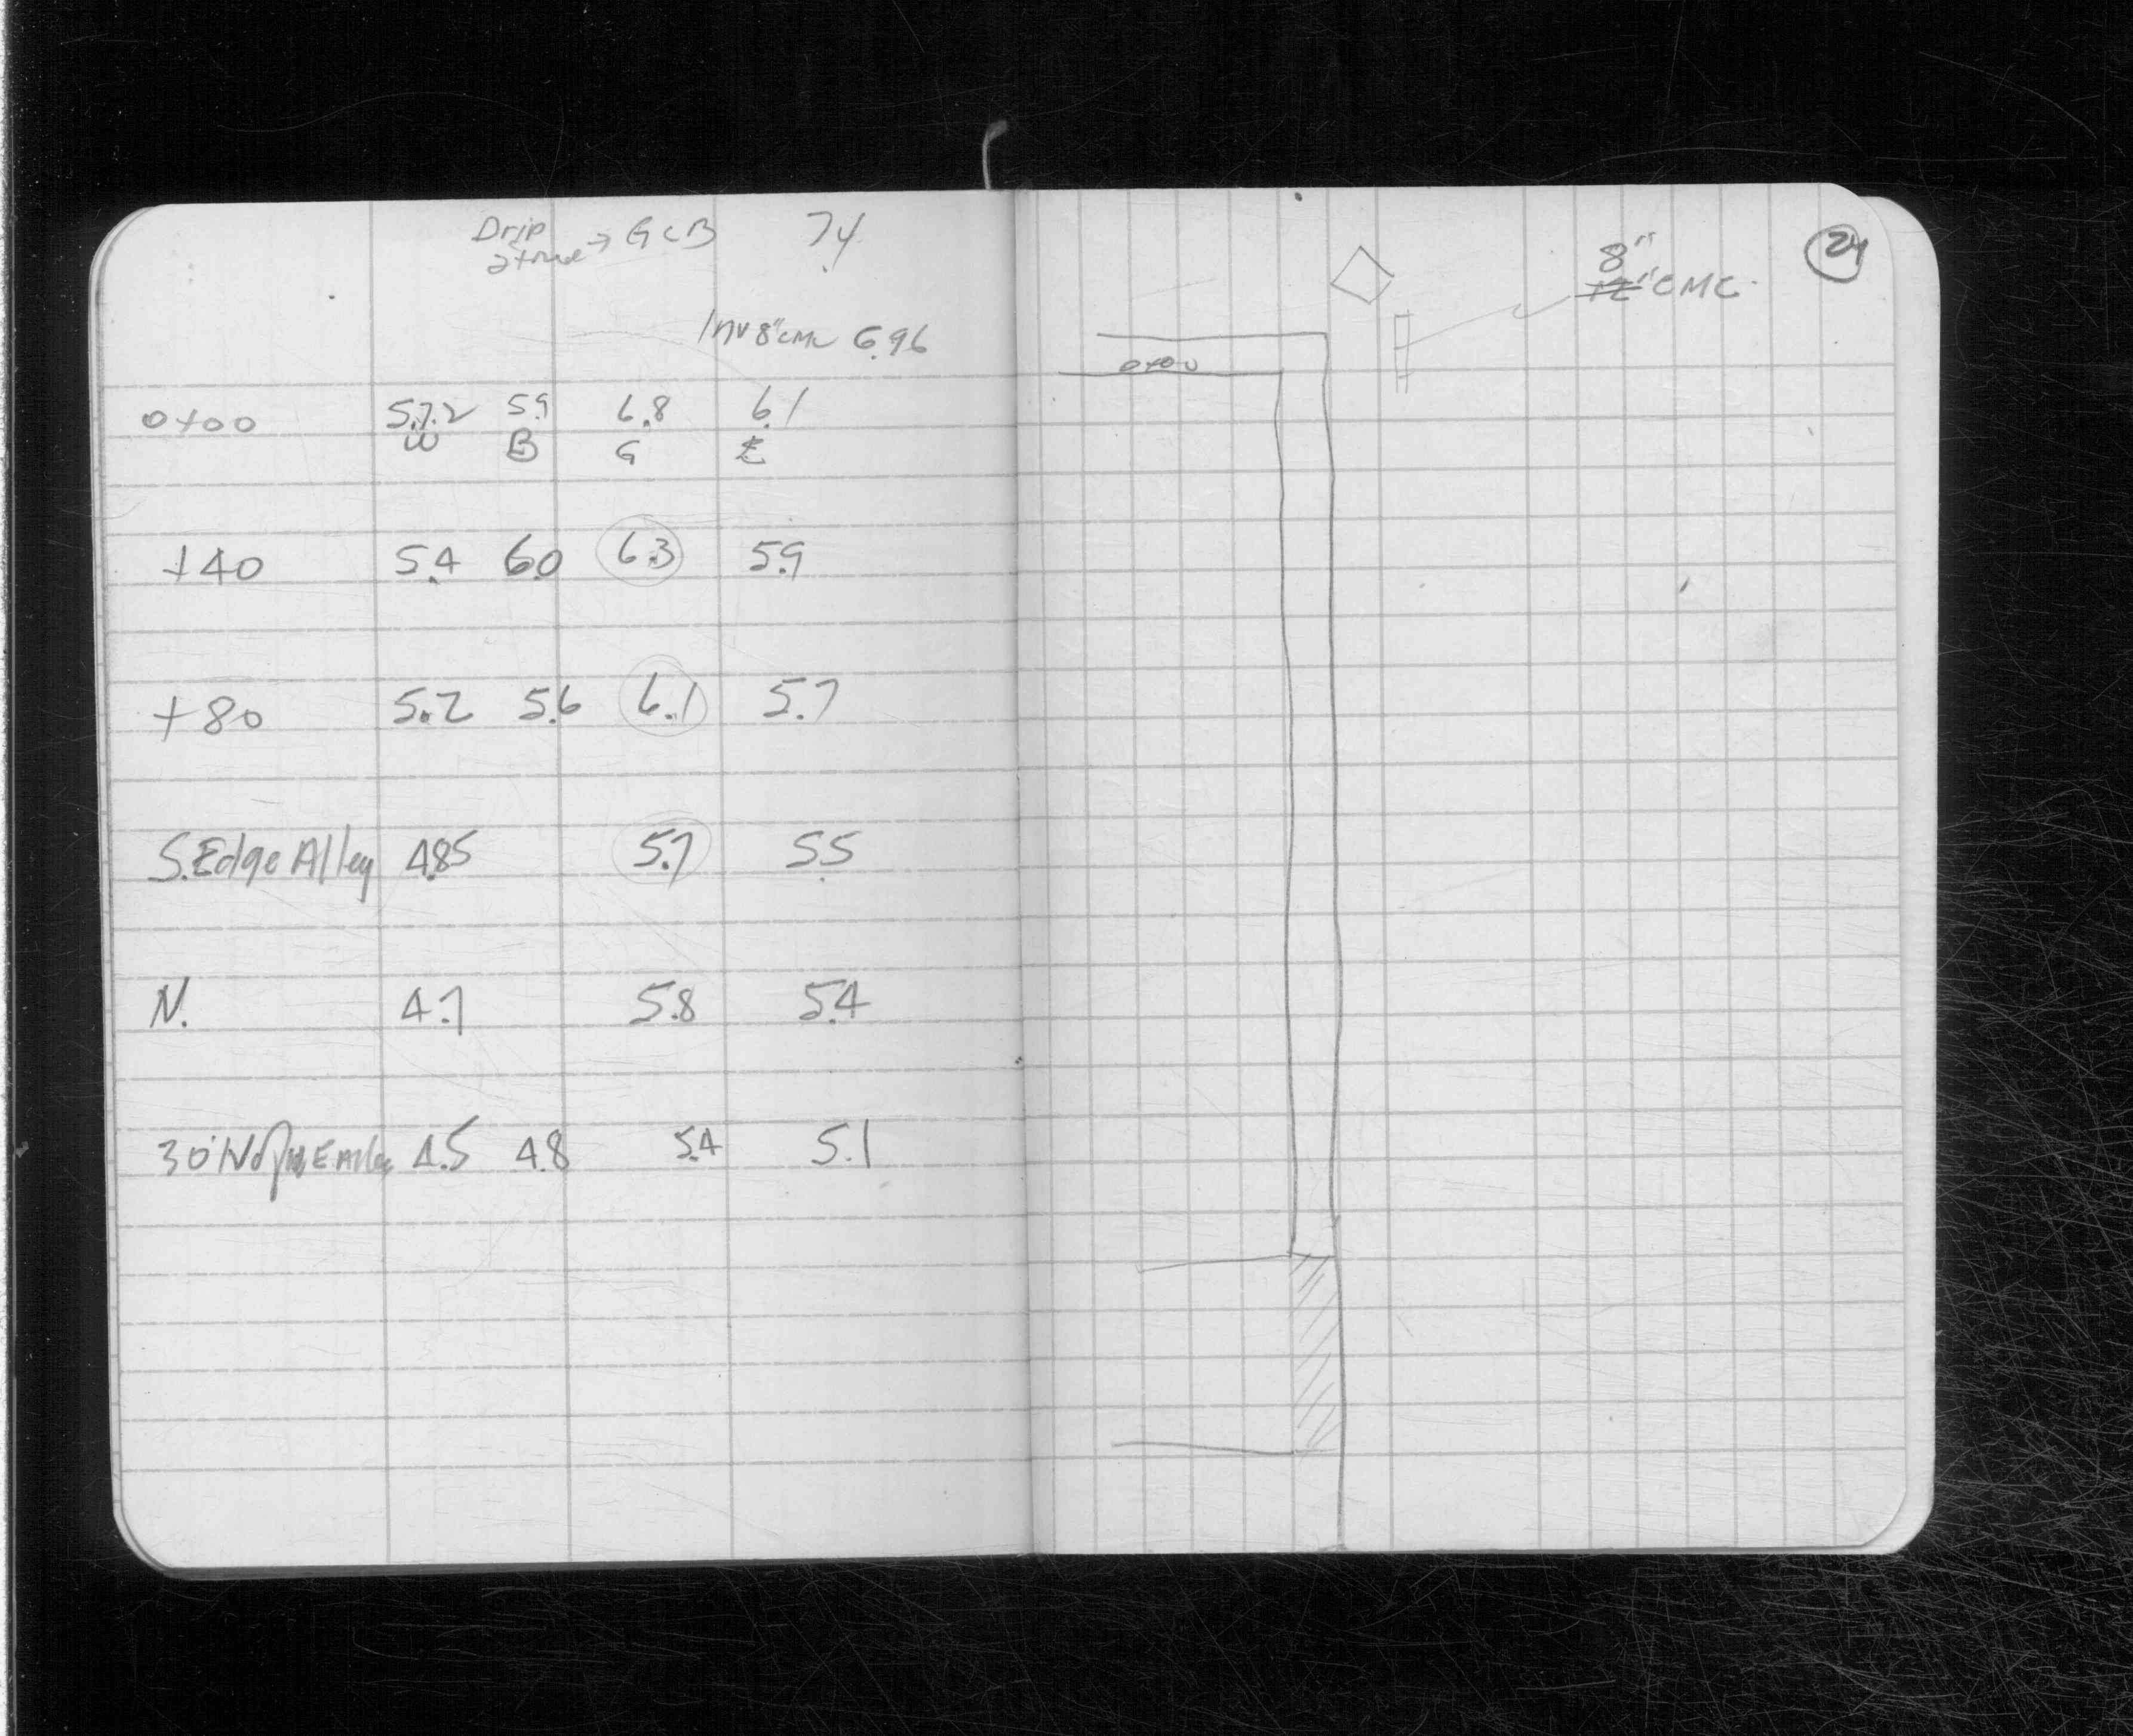 Drip → GCB 7.4
Inv 8" CMC 6.96
0+00 5.72 5.9 6.8 6.1
W B G ℄
+40 5.4 6.0 6.3 5.9
+80 5.2 5.6 6.1 5.7
S. Edge Alley 4.85 5.7 5.5
N. 4.7 5.8 5.4
30' N of Alley 4.5 4.8 5.4 5.1
24
8"
12" CMC
0+00